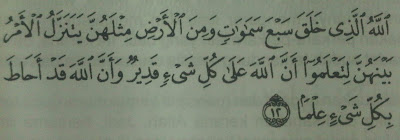 اللَّهُ الَّذِى خَلَقَ سَبْعَ سَمَٰوَٰتٍ وَمِنَ الْأَرْضِ مِثْلَهُنَّ يَتَنَزَّلُ الْأَمْرُ
بَيْنَهُنَّ لِتَعْلَمُوٓا أَنَّ اللَّهَ عَلَىٰ كُلِّ شَىْءٍ قَدِيرٌ وَأَنَّ اللَّهَ قَدْ أَحَاطَ
بِكُلِّ شَىْءٍ عِلْمًا ١٢